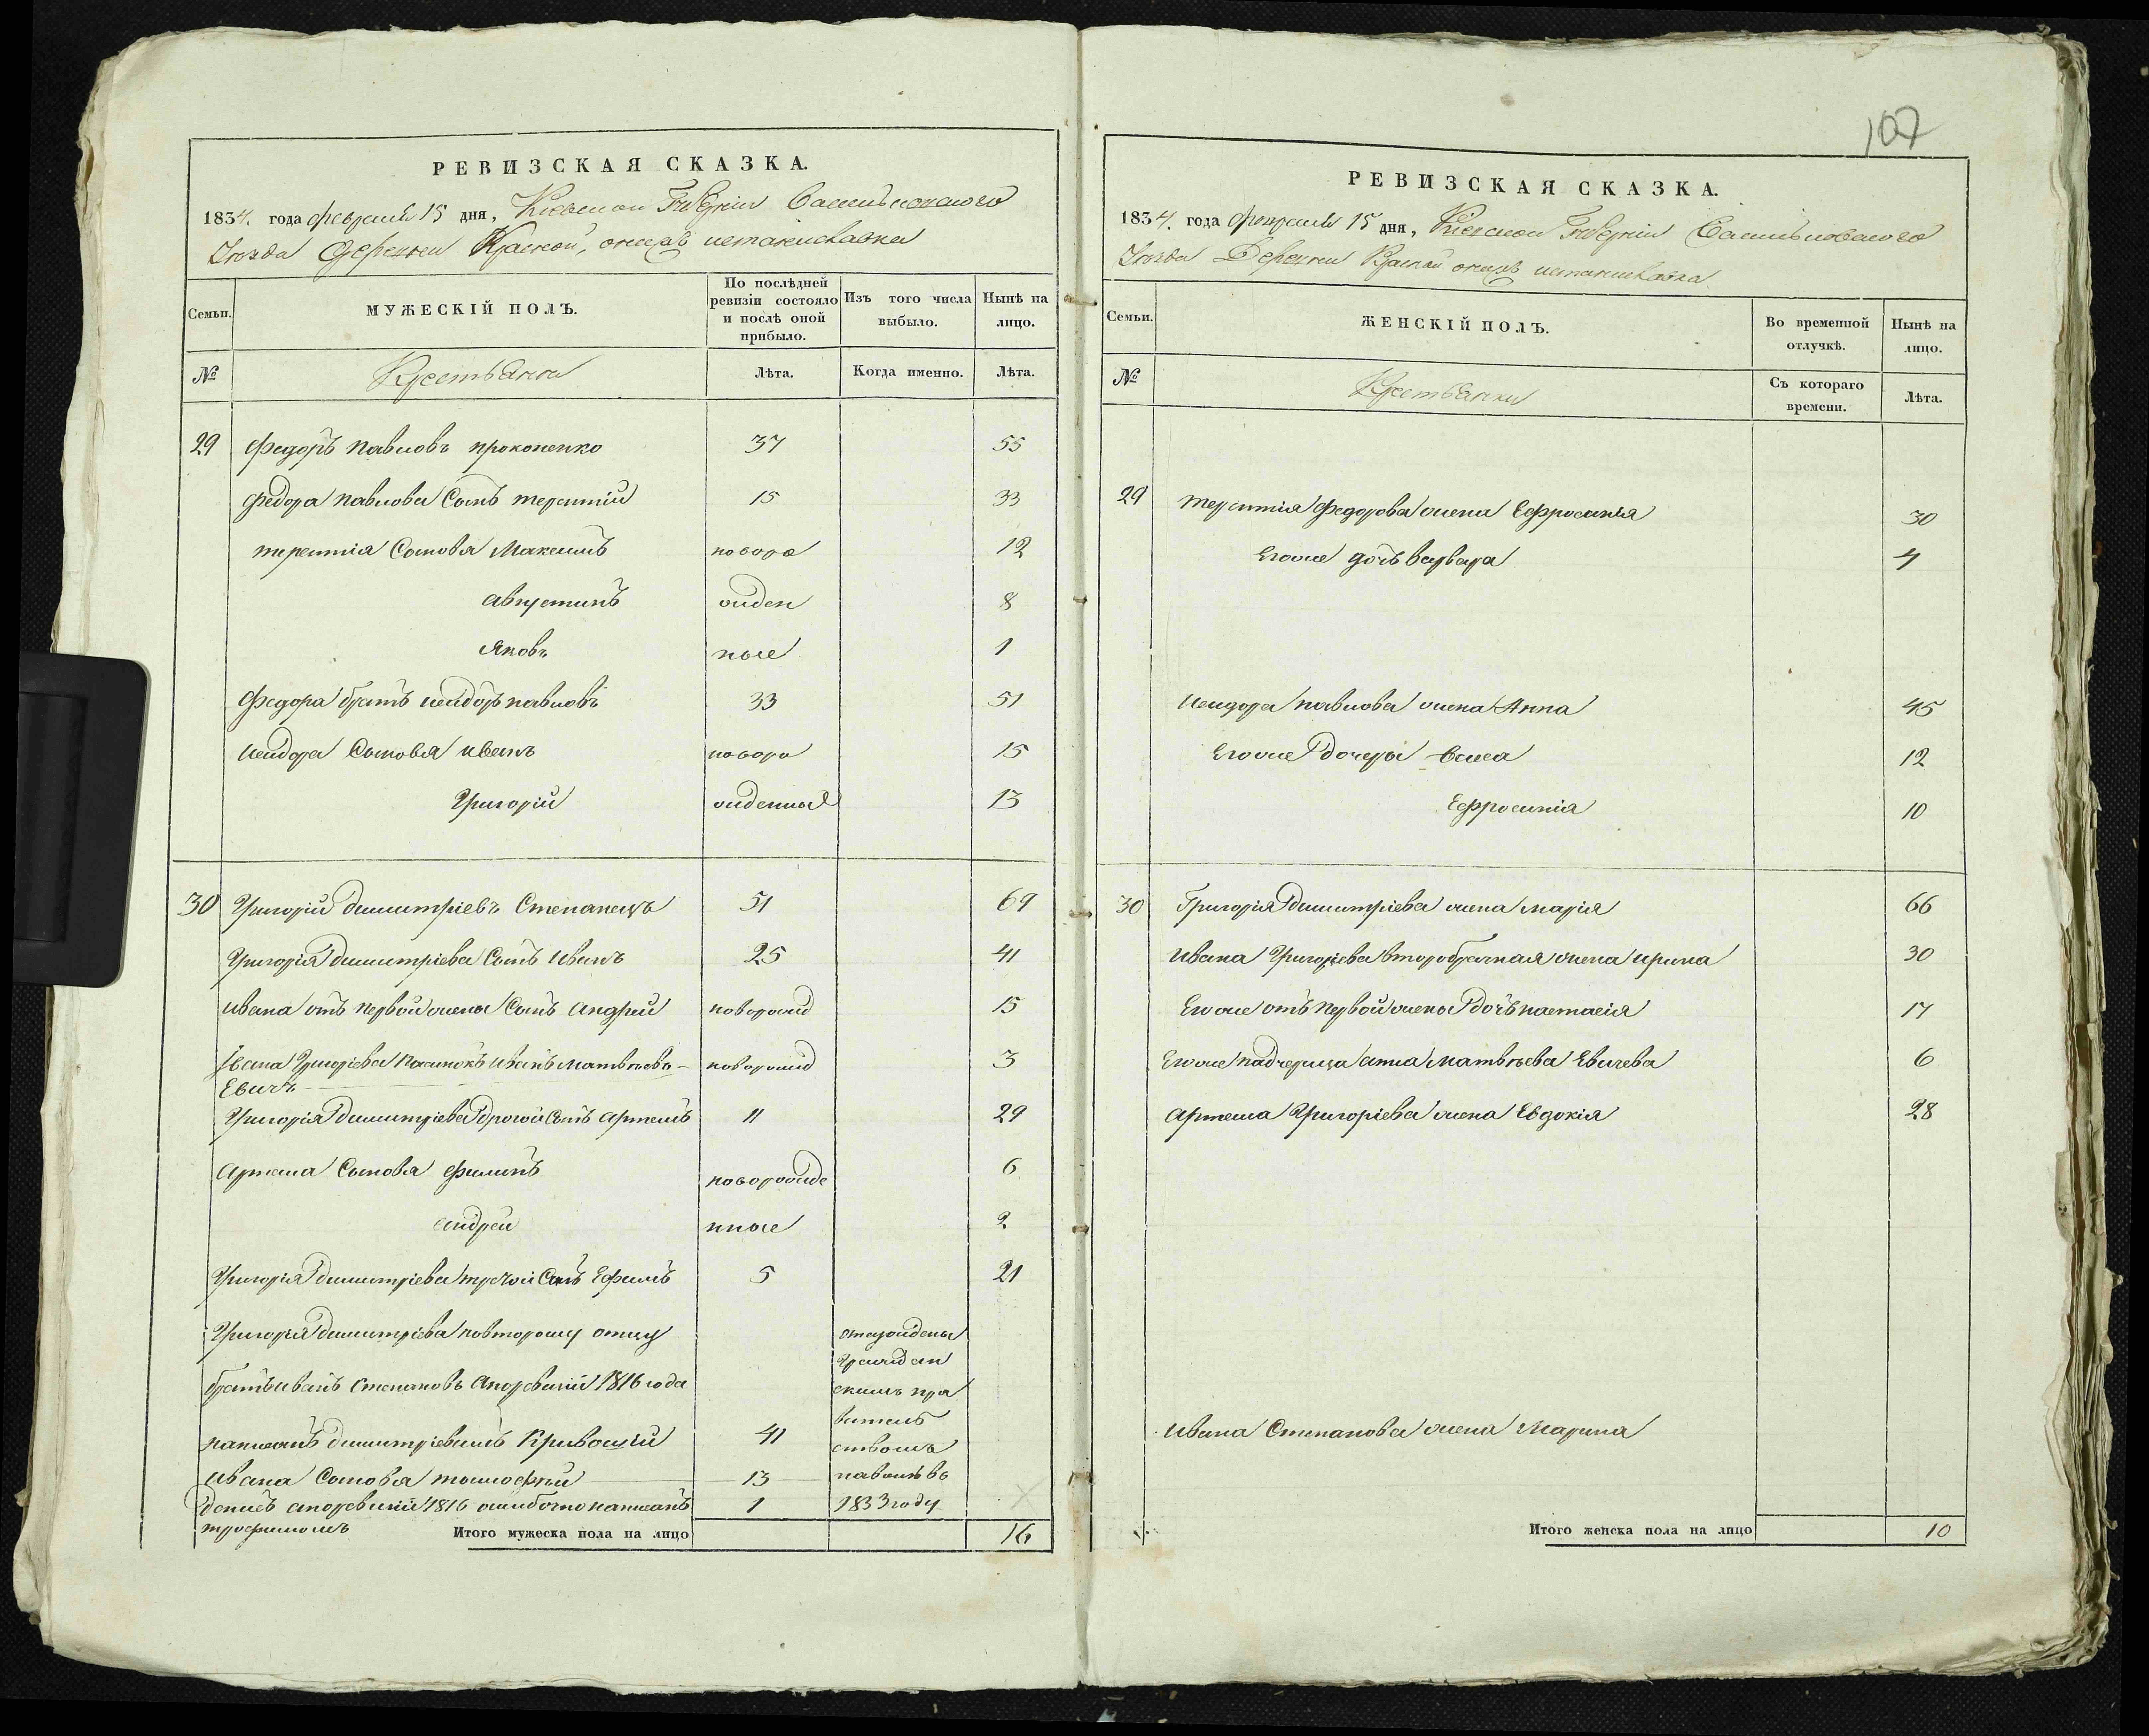 107
РЕВИЗСКАЯ СКАЗКА.
1834. года февраля 15 дня, Кіевской Губерніи Васильковскаго
Уѣзда Деревни Красной, онаяжъ
Семьи.
МУЖЕСКІЙ ПОЛЪ.
По послѣдней ревизіи состояло и послѣ оной прибыло.
Изъ того числа выбыло.
Нынѣ на лицо.
№
Крестьяне
Лѣта.
Когда именно.
Лѣта.
29 Федоръ Павловъ Прокопенко 37 55
Федора Павлова Сынъ терентій 15 33
терентія Сыновья Максимъ новоро 12
Августинъ жден 8
Яковъ ные 1
Федора братъ исидоръ павловъ 33 51
исидора Сыновья иванъ новоро 15
Григорій жденные 13
30 Григорій димитріевъ Степанецъ 51 69
Григорія димитріева Сынъ иванъ 25 41
ивана отъ первой жены Сынъ андрей новорожд 15
Ивана Григоріева Пасинокъ иванъ матвѣевъ новорожд 3
Евичъ
Григорія димитріева другой Сынъ артемъ 11 29
артема Сыновья филипъ новорожде 6
андрей нные 2
Григорія димитріева третой Сынъ Ефимъ 5 21
Григорія димитріева повторому отцу отсужденъ
граждан
братъ иванъ Степановъ 1816 года скимъ пра
витель
написанъ димитріевымъ 41 ствомъ
ивана Сыновья тимофей 13
денисъ 1816 ошибочно написанъ 1 1833 году
трофимомъ
Итого мужеска пола на лицо 16
РЕВИЗСКАЯ СКАЗКА.
1834. года февраля 15 дня, Кіевской Губерніи Васильковскаго
Уѣзда Деревни Красной онаяжъ
Семьи.
ЖЕНСКІЙ ПОЛЪ.
Во временной отлучкѣ.
Нынѣ на лицо.
№
Крестьянки
Съ котораго времени.
Лѣта.
29 терентія Федорова жена Ефросинія 30
Егоже дочь варвара 4
исидора павлова жена Анна 45
Егоже дочери 12
Ефросинія 10
30 Григорія димитріева жена марія 66
ивана Григоріева второбрачная жена ирина 30
Егоже отъ первой жены дочь настасія 17
Егоже падчерица анна матвѣева Евичева 6
артема Григоріева жена Евдокія 28
ивана Степанова жена Марина
Итого женска пола на лицо 10